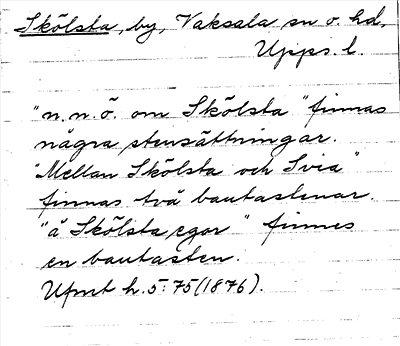 Skölsta, by, Vaksala sn o. hd,
Upps. l.
"n.n.ö. om Skölsta" finnas
några stensättningar.
"Mellan Skölsta och Svia"
finnas två bautastenar.
"å Skölsta egor" finnes
en bautasten.
Ufmt h. 5: 75 (1876).